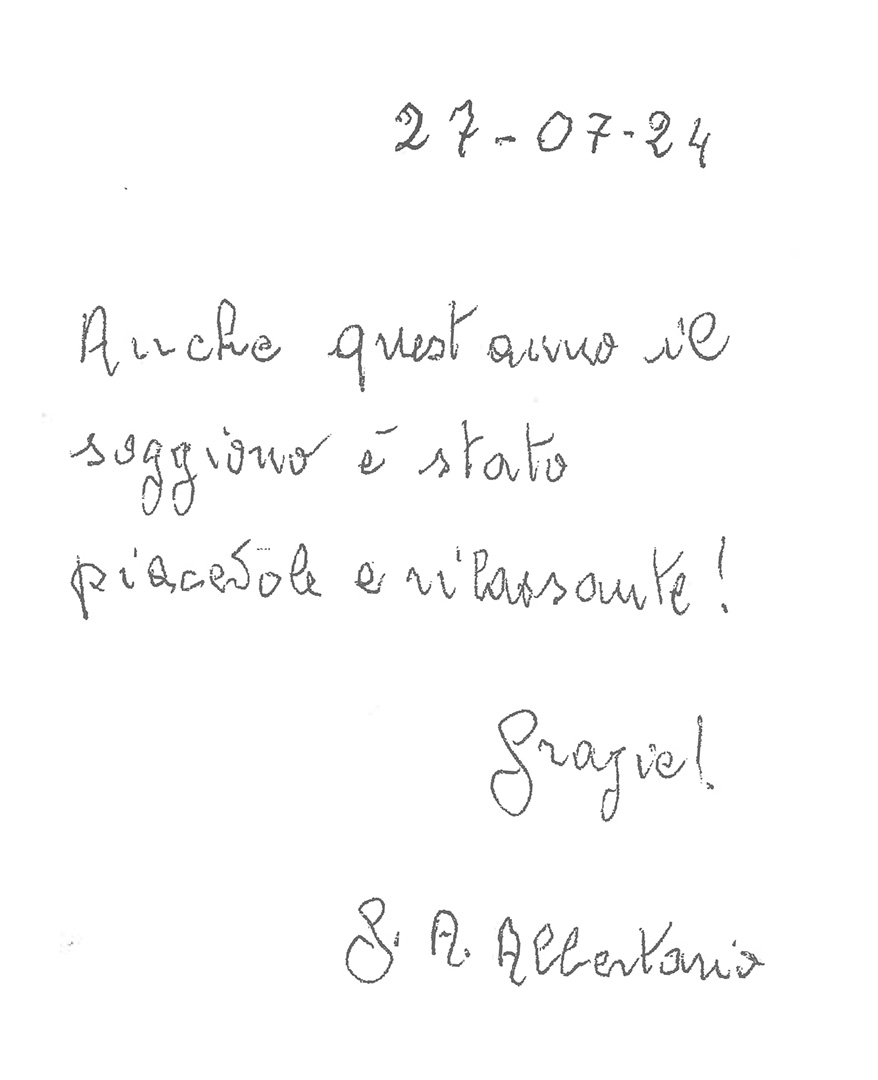 27-07-24
Anche quest anno il
soggiorno è stato
piacevole e rilassante!
Grazie!
G. A. Albertario